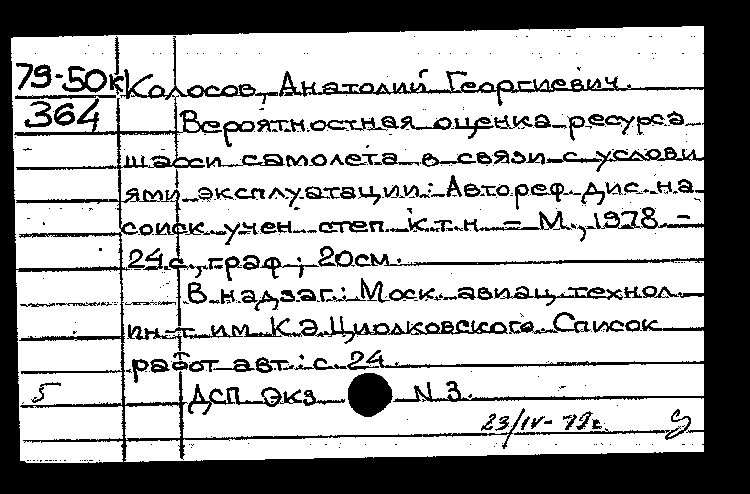 79-50к Колосов, Анатолий Георгиевич.
364 Вероятностная оценка ресурса
шасси самолета в связи с услови
ями эксплуатации: Автореф. дис. на
соиск. учен. степ. к.т.н. - М., 1978 -
24с., граф.; 20см.
В надзаг.: Моск. авиац. технол.
ин-т им. К.Э.Циолковского. Список
работ авт.: с. 24.
5 ДСП Экз. N 3.
23/IV-79г.